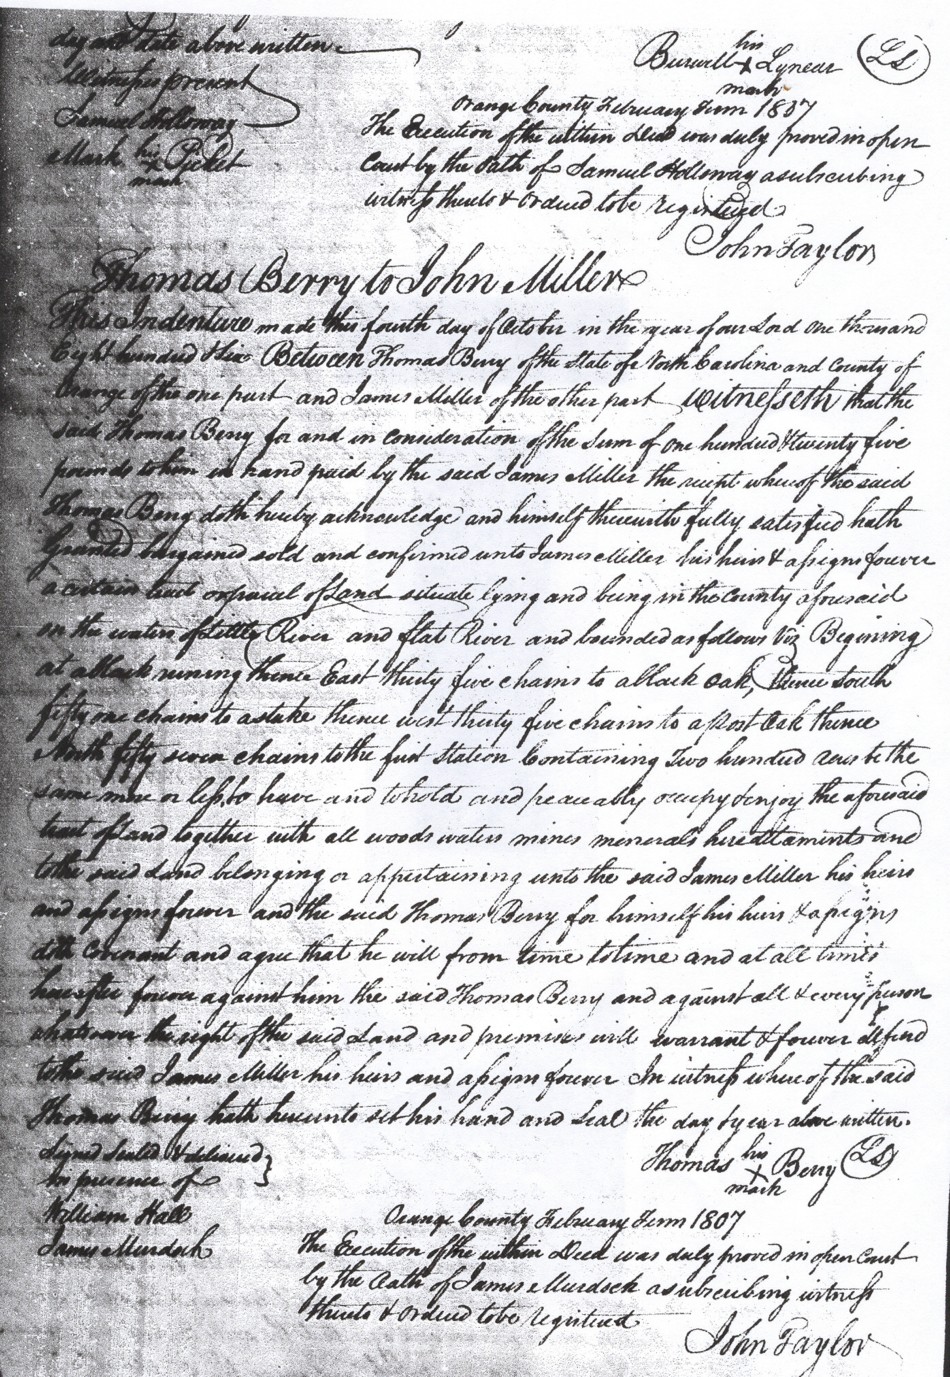 day and date above written
Witnesses present
Samuel Holloway
Mark his x Picket
mark
Burwell his x Lynear (LS)
mark
Orange County February Term 1807
The Execution of the within deed was duly proved in open
Court by the Oath of Samuel Holloway a subscribing
witness thereto & Ordered to be registered
John Taylor
Thomas Berry to John Miller
This Indenture made this fourth day of October in the year of our Lord One thousand
Eight hundred & Six Between Thomas Berry of the State of North Carolina and County of
Orange of the one part and James Miller of the other part Witnesseth that the
said Thomas Berry for and in Consideration of the Sum of one hundred & twenty five
pounds to him in hand paid by the said James Miller the receipt whereof the said
Thomas Berry doth hereby acknowledge and himself therewith fully satisfied hath
Granted bargained sold and confirmed unto James Miller his heirs & assigns forever
a certain tract or parcel of Land situate lying and being in the County aforesaid
on the waters of Little River and flat River and bounded as follows Viz Begining
at a black runing thence East thirty five chains to a black Oak, thence South
fifty one chains to a stake thence west thirty five chains to a post Oak thence
North fifty seven chains to the first Station Containing Two hundred acres be the
same more or less to have and to hold and peaceably occupy & enjoy the aforesaid
tract of Land together with all woods waters mines menerals hereditaments and
to the said Land belonging or appertaining unto the said James Miller his heirs
and assigns forever and the said Thomas Berry for himself his heirs & assigns
doth Covenant and agree that he will from time to time and at all times
hereafter forever against him the said Thomas Berry and against all & every person
whatsoever the right of the said Land and premises will warrant & forever defend
to the said James Miller his heirs and assigns forever In witness whereof the said
Thomas Berry hath hereunto set his hand and Seal the day & year above written.
Signed Sealed & delivered
in presence of
William Hall
James Murdock
Thomas his x Berry (LS)
mark
Orange County February Term 1807
The Execution of the within Deed was duly proved in open Court
by the Oath of James Murdock a subscribing witness
thereto & Ordered to be registered
John Taylor